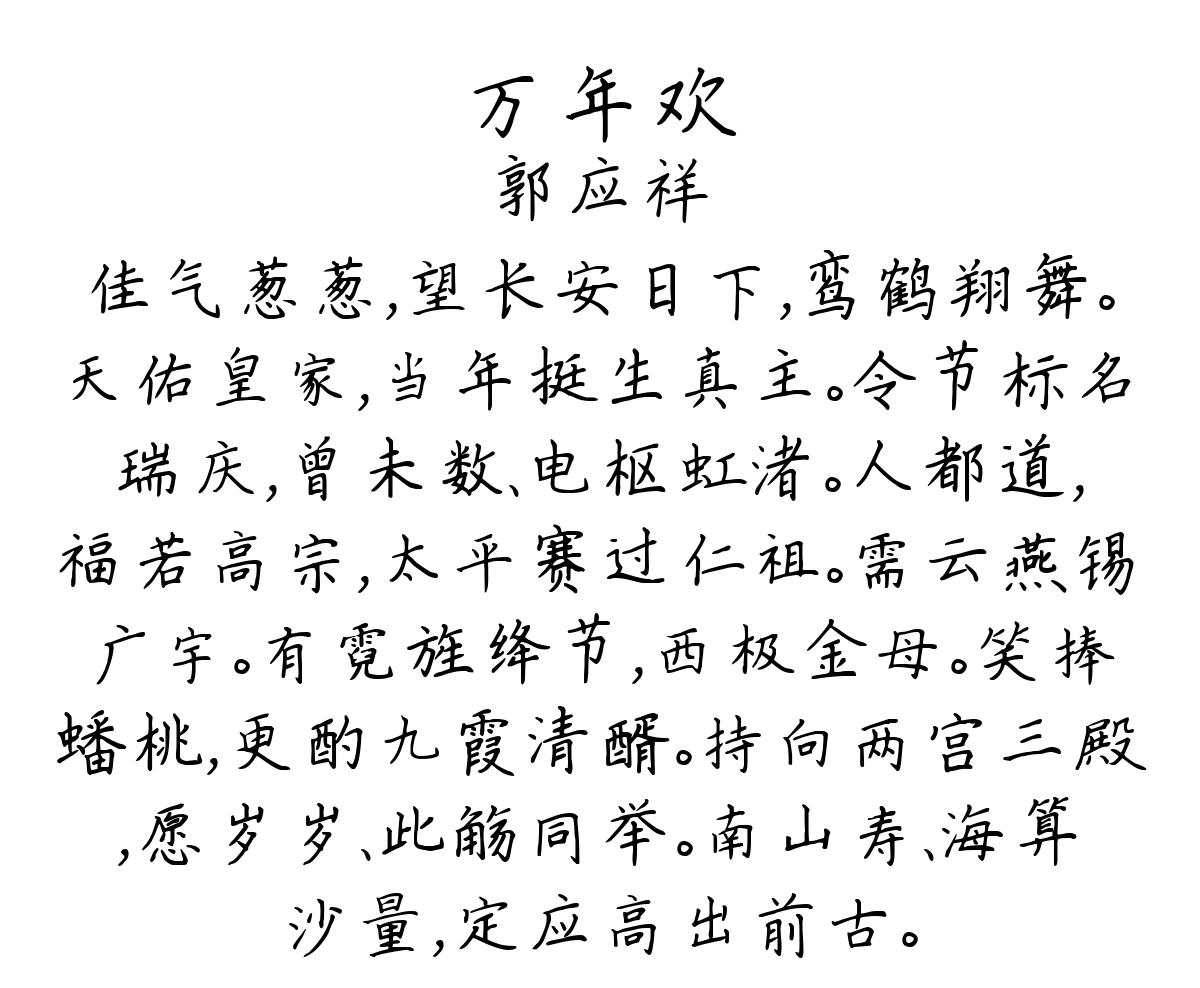 万年欢
郭应祥
佳气葱葱,望长安日下,鸾鹤翔舞。
天佑皇家,当年挺生真主。令节标名
瑞庆,曾未数、电枢虹渚。人都道,
福若高宗,太平赛过仁祖。需云燕锡
广宇。有霓旌绛节,西极金母。笑捧
蟠桃,更酌九霞清醑。持向两宫三殿
,愿岁岁、此觞同举。南山寿、海算
沙量,定应高出前古。